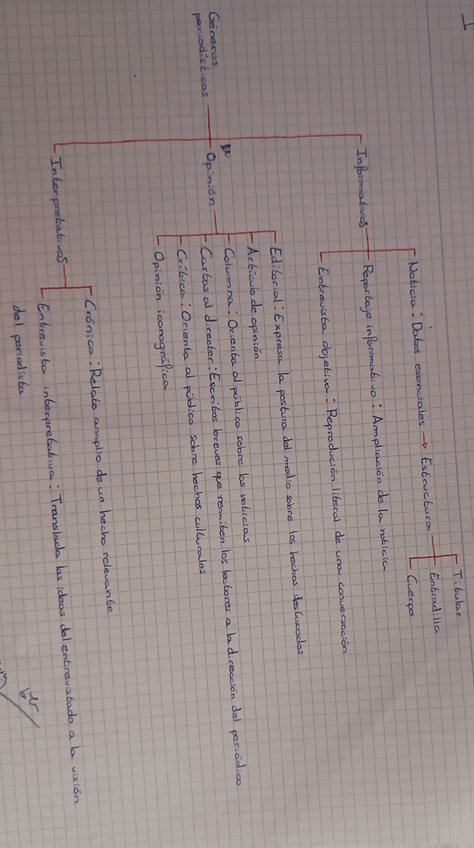 1
Géneros
periodísticos
Informativos
Noticia: Datos esenciales → Estructura
Titular
Entradilla
Cuerpo
Reportaje informativo: Ampliación de la noticia
Entrevista objetiva: Reprodución literal de una conversación
Opinión
Editorial: Expresa la postura del medio sobre los hechos destacados
Artículo de opinión
Columna: Orienta al público sobre las noticias
Cartas al director: Escritos breves que remiten los lectores a la dirección del periódico
Crítica: Orienta al público sobre hechos culturales
Opinión iconográfica
Interpretativos
Crónica: Relato amplio de un hecho relevante
Entrevista interpretativa: Translada las ideas del entrevistado a la visión
del periodista